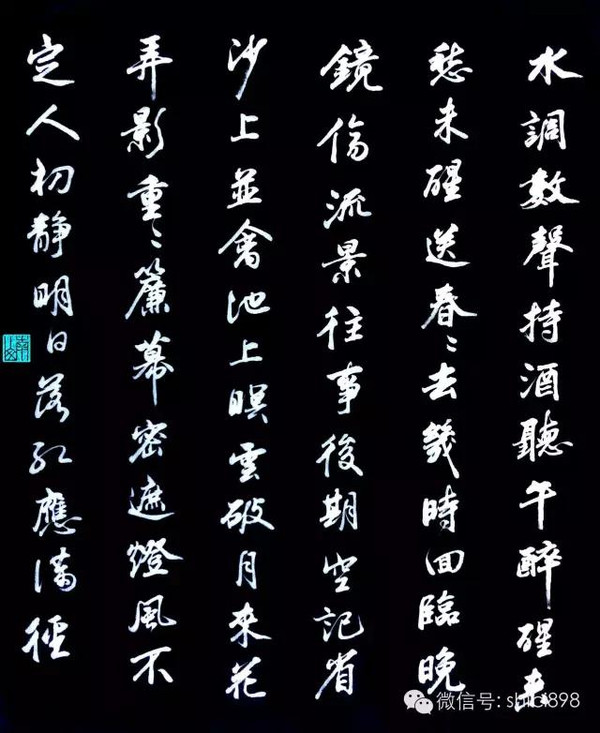 水調數聲持酒聽午醉醒來
愁未醒送春〻去幾時回臨晚
鏡傷流景往事後期空記省
沙上並禽池上暝雲破月來花
弄影重〻簾幕密遮燈風不
定人初靜明日落紅應滿徑
微信号: shici898